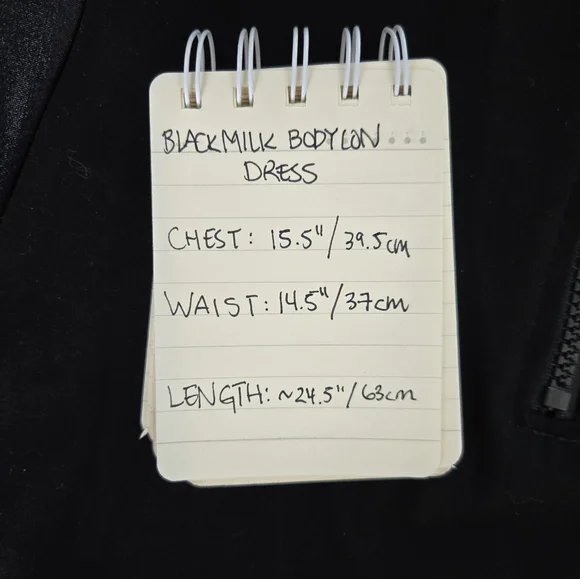 BLACKMILK BODYCON
DRESS
CHEST: 15.5"/39.5cm
WAIST: 14.5"/37cm
LENGTH: ~24.5"/63cm